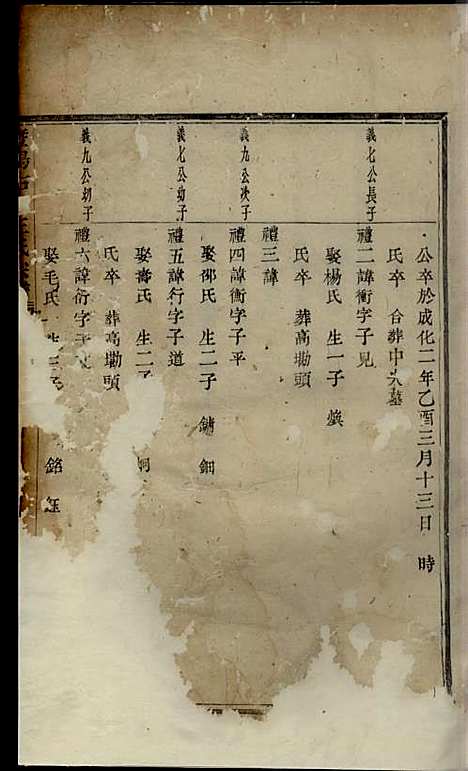 公卒於成化二年乙酉三月十三日 時
氏卒 合葬中
義七公長子
禮二諱衝字子見
娶楊氏 生一子 煥
氏卒 葬高塘頭
禮三諱
義九公次子
禮四諱衡字子平
娶邵氏 生二子 鏽 鈿
義七公幼子
禮五諱行字子道
娶壽氏 生二子
氏卒 葬高塘頭
義九公幼子
禮六諱衍字子
娶毛氏 銘 鈺